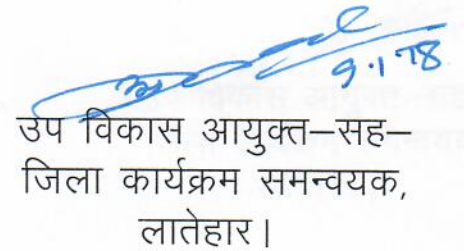 9.1.18
उप विकास आयुक्त–सह–
जिला कार्यक्रम समन्वयक,
लातेहार।